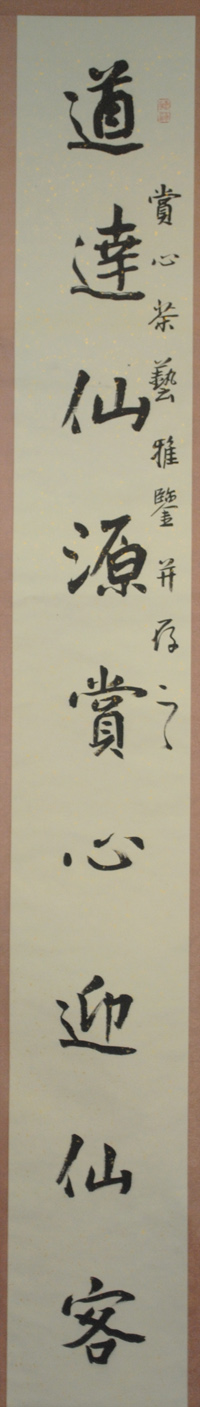 賞心茶藝雅鑒並存之
道達仙源賞心迎仙客